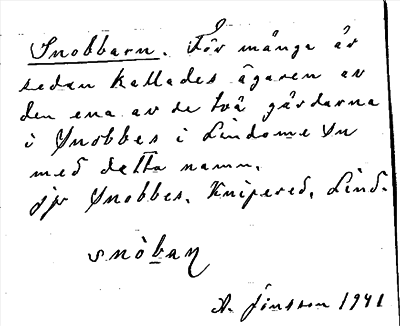 Snobbarn. För många år
sedan kallades ägaren av
den ena av de två gårdarna
i Snobbes i Lindome Sn
med detta namn.
jfr Snobbes, Knipered, Lind.
snòban
A. Jönsson 1941